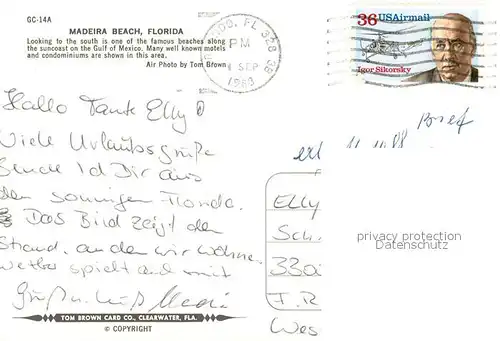 GC-14A
MADEIRA BEACH, FLORIDA
Looking to the south is one of the famous beaches along
the suncoast on the Gulf of Mexico. Many well known motels
and condominiums are shown in this area.
Air Photo by Tom Brown
CO, FL
PM
SEP
36 USAirmail
Igor Sikorsky
Hallo Tante Elly
Viele Urlaubsgrüße
Dir aus
dem sonnigen Florida.
Das Bild zeigt den
Strand, an dem wir wohnen.
Wetter spielt auch mit
Gruß
TOM BROWN CARD CO., CLEARWATER, FLA.
© COPYRIGHT
Josef
Elly
Sch.
privacy protection
Datenschutz
Wes